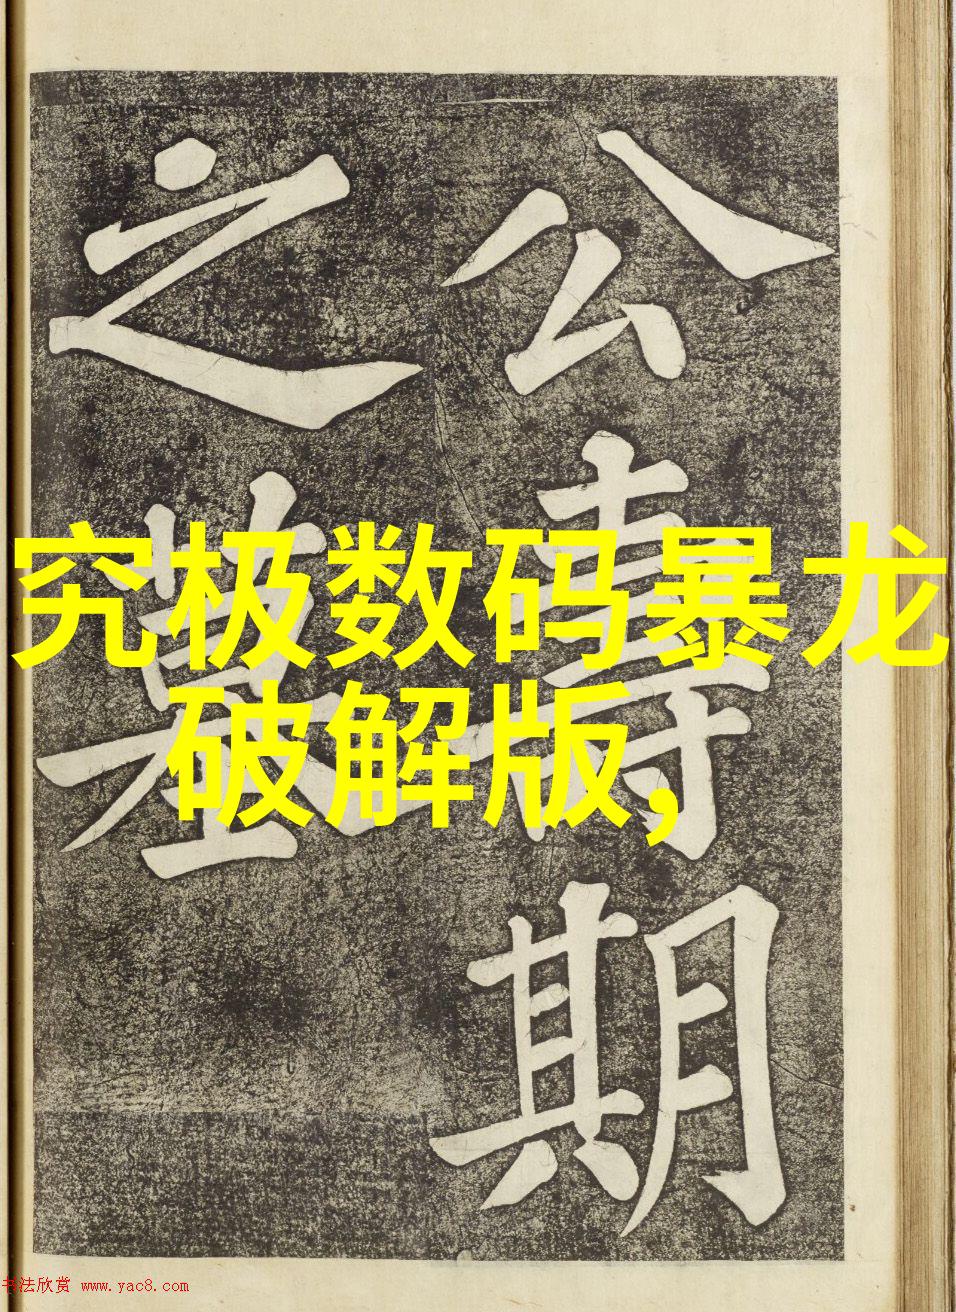 公壽期
之墓
究极数码暴龙
破解版,
书法欣赏 www.yac8.com